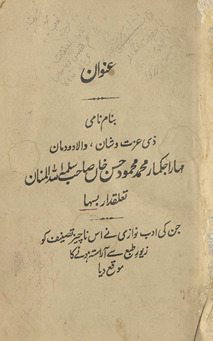 عنوان
بنام نامی
ذی عزت و شان، والا دودمان
مہاراجکمار محمد محمود حسن خاں صاحب سلمہ اللہ المنان
تعلقدار بسہا
جن کی ادب نوازی نے اس ناچیز تصنیف کو
زیور طبع سے آراستہ ہونے کا
موقع دیا